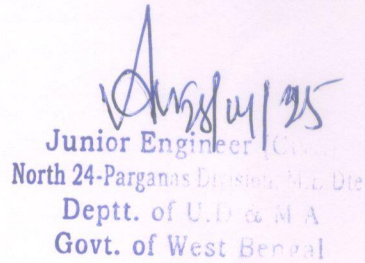 Junior Engineer
North 24-Parganas Division, M.E. Dte
Deptt. of U.D & M A
Govt. of West Bengal